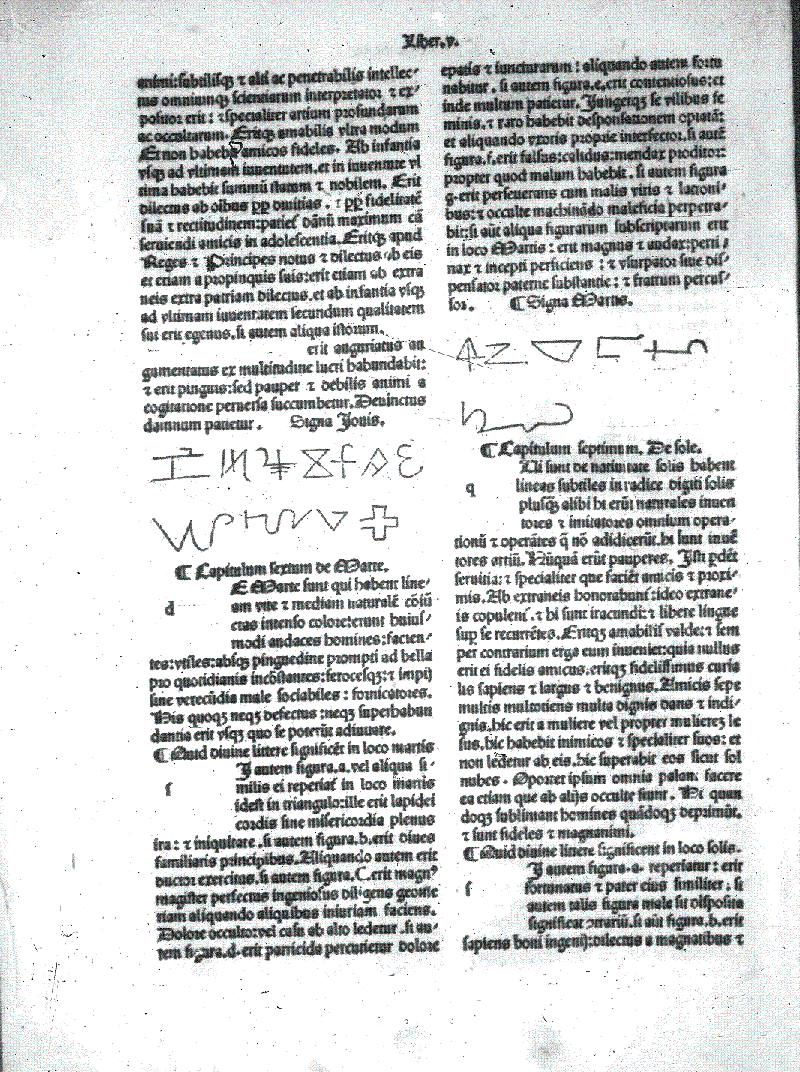 Liber. v.
animi: subtilisqȝ ⁊ alti ac penetrabilis intellec⸗
tus omniumqȝ scientiarum interpretator ⁊ ex⸗
positor erit: ⁊ specialiter artium profundarum
ac occultarum. Eritqȝ amabilis vltra modum
Et non habebit amicos fideles. Ab infantia
vsqȝ ad vltimam iuuentutem. et in iuuentute vl
tima habebit summū statum ⁊ nobilem. Erit
dilectus ab oībus ꝓp diuitias. ⁊ ꝓp fidelitatē
suā ⁊ rectitudinem: patief dānū maximum cā
seruiendi amicis in adolescentia. Eritqȝ apud
Reges ⁊ Principes notus ⁊ dilectus ab eis
et etiam a propinquis suis: erit etiam ab extra
neis extra patriam dilectus. et ab infantia vsqȝ
ad vltimam iuuentutem secundum qualitatem
sui erit egenus. si autem aliqua istorum.
erit anguriatus au
gumentatus ex multitudine lucri habundabit:
⁊ erit pinguis: sed pauper ⁊ debilis animi a
cogitatione peruersa succumbetur. Deuinctus
damnum patietur. Signa Jouis.
¶ Capitulum sextum de Marte.
E Marte sunt qui habent line⸗
d am vite ⁊ mediam naturalē cōiū
ctas intenso coloreterunt huius⸗
modi audaces homines: facien⸗
tes: vtiles: absqȝ pinguedine prompti ad bella
pro quotidianis incōstantes: ferocesqȝ: ⁊ impij
sine verecūdia male sociabiles: fornicatores.
His quoqȝ neqȝ defectus: neqȝ superhabun
dantia erit vsqȝ quo se poterūt adiuuare.
¶ Quid diuine littere significēt in loco martis
I autem figura. a. vel aliqua si⸗
s milis ei reperiaf in loco martis
idest in triangulo: ille erit lapidei
cordis sine misericordia plenus
ira: ⁊ iniquitate. si autem figura. b. erit diues
familiaris principibus. Aliquando autem erit
ductor exercitus. si autem figura. C. erit magnꝰ
magister perfectus ingeniosus diligens geome
triam aliquando aliquibus iniuriam faciens.
Dolore occulto: vel casu ab alto ledetur. si au⸗
tem figura. d. erit parricida percutietur dolore
epatis ⁊ iuncturarum: aliquando autem
nabitur. si autem figura. e. erit contentiosus: et
inde multum patietur. Jungetqȝ se vilibus fe
minis. ⁊ raro habebit desponsationem optatā:
et aliquando vxoris proprie interfector. si autē
figura. f. erit falsus: calidus: mendax proditor:
propter quod malum habebit. si autem figura
g. erit perseuerans cum malis viris ⁊ latroni⸗
bus: ⁊ occulte machinādo maleficia perpetra⸗
bit: si aūt aliqua figurarum subscriptarum erit
in loco Martis: erit magnus ⁊ audax: perti⸗
nax ⁊ incepti perficiens: ⁊ vsurpator siue dis⸗
pensator paterne substantie: ⁊ fratrum percus⸗
sor. ¶ Signa Martis.
¶ Capitulum septimum. De sole.
Ui sunt de natiuitate solis habent
q lineas subtiles in radice digiti solis
plusqȝ alibi hi erūt naturales inuen
tores ⁊ imitatores omnium opera⸗
tionū ⁊ operātes q̄ nō addidicerūt. hi sunt inuē
tores artiū. Nūquā erūt pauperes. Isti pdēt
seruitia: ⁊ specialiter que faciēt amicis ⁊ proxi⸗
mis. Ab extraneis honorabunf: ideo extrane⸗
is copulenf. ⁊ hi sunt iracundi: ⁊ libere lingue
sup se recurrētes. Eritqȝ amabilis valde: ⁊ sem
per contrarium erga eum inuenief: quia nullus
erit ei fidelis amicus. eritqȝ fidelissimus curia
lis sapiens ⁊ largus ⁊ benignus. Amicis sepe
multis multotiens multa dignis dans ⁊ indi⸗
gnis. hic erit a muliere vel propter mulieres le
sus. hic habebit inimicos ⁊ specialiter suos: et
non ledetur ab eis. hic superabit eos sicut sol
nubes. Oportet ipsum omnia palam facere
ea etiam que ab alijs occulte fiunt. Hi quan
doqȝ sublimant homines quādoqȝ deprimūt.
⁊ sunt fideles ⁊ magnanimi.
¶ Quid diuine littere significent in loco solis.
I autem figura. a. reperiatur: erit
s fortunatus ⁊ pater eius similiter. si
autem talis figura male sit disposita
significat ɔtrariū. si aūt figura. b. erit
sapiens boni ingenij: dilectus a magnatibus ⁊